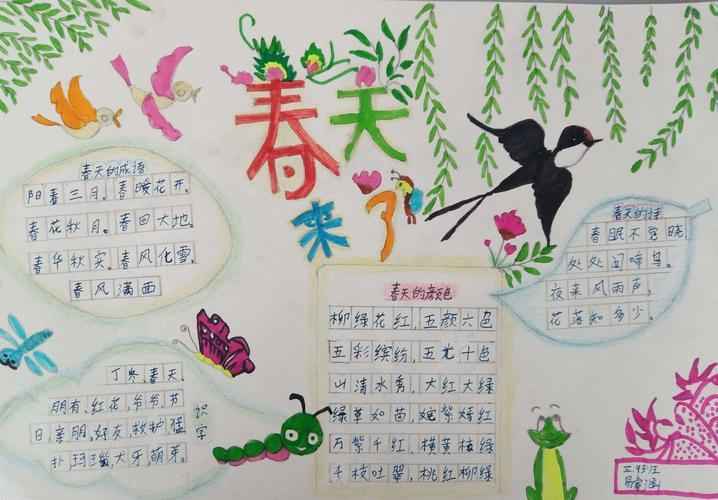 春天来了
春天的成语
阳春三月。春暖花开。
春花秋月。春回大地。
春华秋实。春风化雪。
春风满面
春天的诗
春眠不觉晓
处处闻啼鸟。
夜来风雨声。
花落知多少。
春天的颜色
柳绿花红,五颜六色
五彩缤纷,五光十色
山清水秀,大红大绿
绿草如茵,姹紫嫣红
万紫千红,橙黄桔绿
千枝吐翠,桃红柳绿
识字
丁冬,春天。
朋友、红花、爷爷、节
日、亲朋、好友、救护、猛
扑、大牙、萌芽。